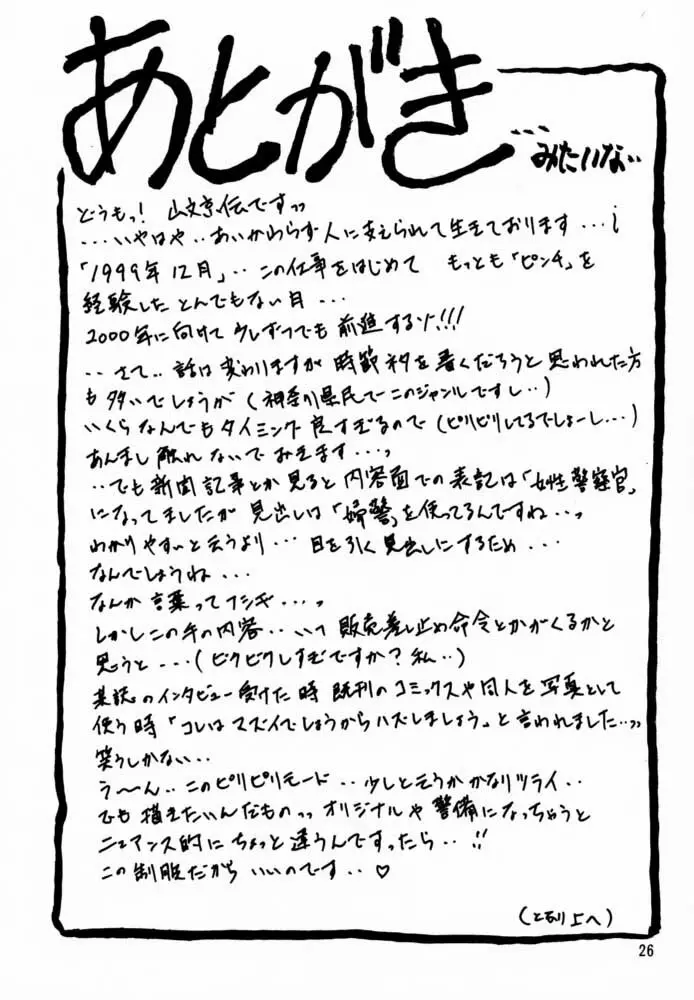 あとがき
...みたいな..
どうもっ! 山文京伝ですっっ
...いやはや..あいかわらず人に支えられて生きております...i
「1999年12月」..この仕事をはじめて もっとも「ピンチ」を
経験したとんでもない月...
2000年に向けて少しずつでも前進するゾ!!!
..さて..話は変わりますが時節ネタを書くだろうと思われた方
も多いでしょうが(神奈川県民でこのジャンルですし..)
いくらなんでもタイミング良すぎるので(ピリピリしてるでしょーし...)
あんまし触れないでおきます...っ
..でも新聞記事とか見ると内容面での表記は「女性警察官」
になってましたが見出しは「婦警」を使ってるんですね...っ
わかりやすいと云うより...目を引く見出しにするため...
なんでしょうね...
なんか言葉ってフシギ...っ
しかしこの手の内容..いつ販売差し止め命令とかがくるかと
思うと...(ビクビクしすぎですか?私..)
某誌のインタビュー受けた時既刊のコミックスや同人を写真として
使う時「コレはマズイでしょうからハズしましょう」と言われました..っっ
笑うしかない..
う〜ん..このピリピリモード..少しと云うかかなりツライ..
でも描きたいんだものっっオリジナルや警備になっちゃうと
ニュアンス的にちょっと違うんですったら..!!
この制服だから いいのです..♡
(となり上へ)
26